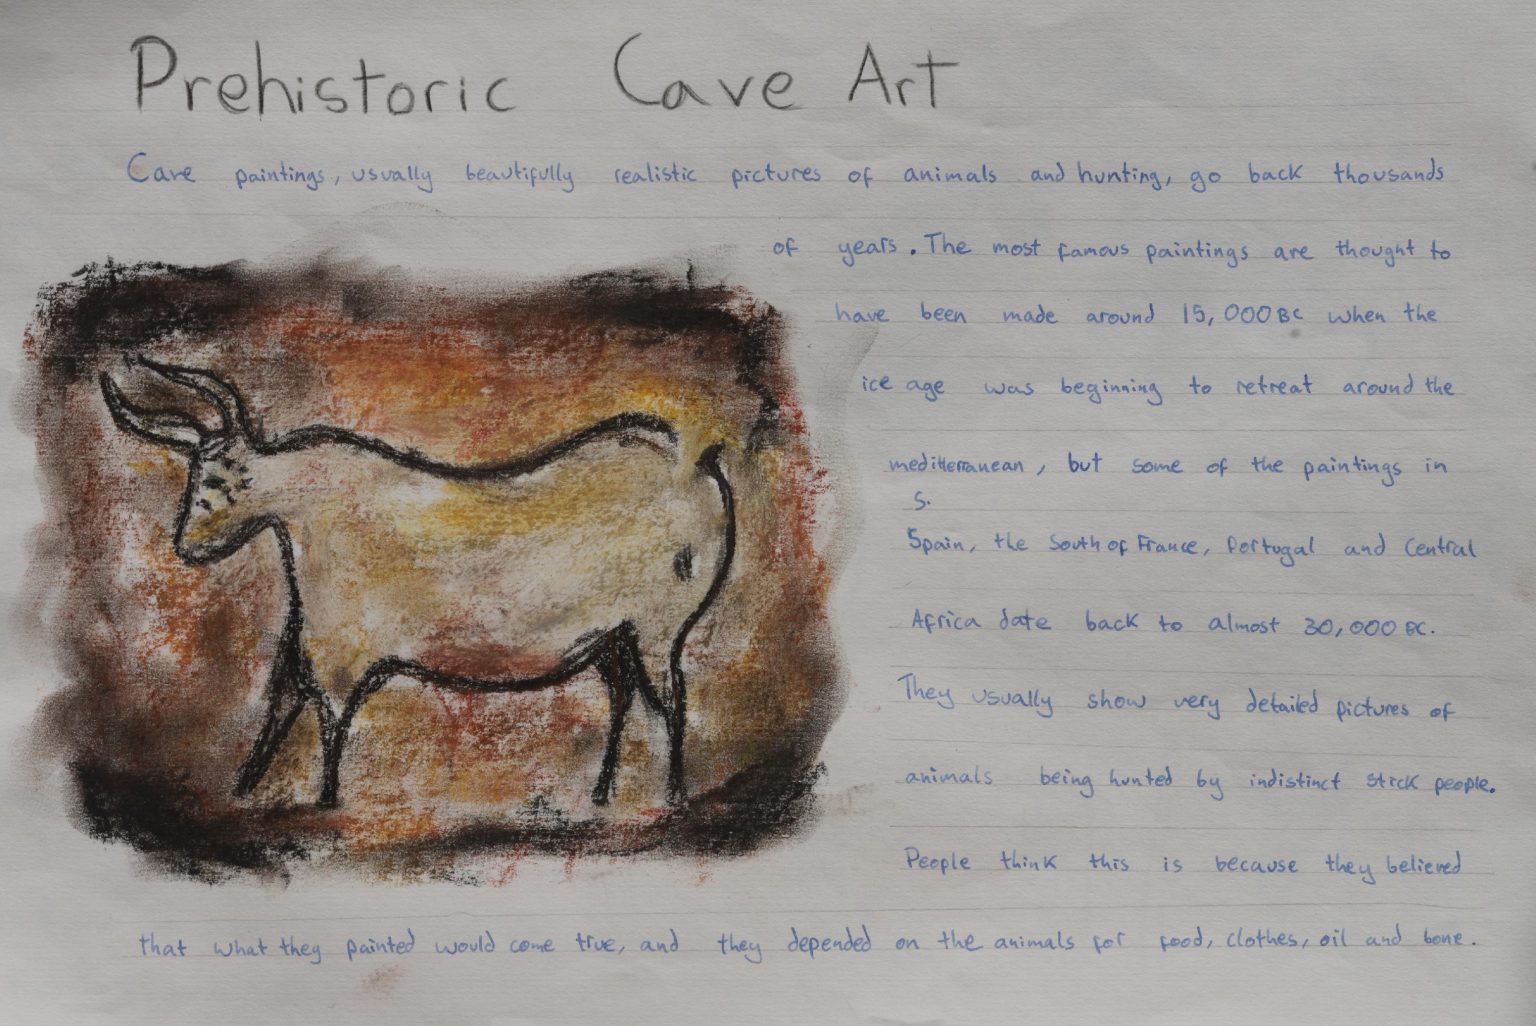 Prehistoric Cave Art
Cave paintings, usually beautifully realistic pictures of animals and hunting, go back thousands
of years. The most famous paintings are thought to
have been made around 15,000 BC when the
ice age was beginning to retreat around the
mediterranean, but some of the paintings in
S.
Spain, the South of France, Portugal and Central
Africa date back to almost 30,000 BC.
They usually show very detailed pictures of
animals being hunted by indistinct stick people.
People think this is because they believed
that what they painted would come true, and they depended on the animals for food, clothes, oil and bone.